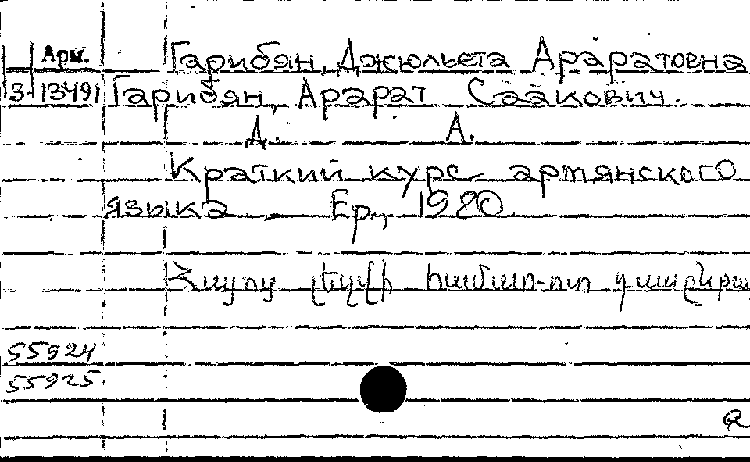 Арм.
Гарибян, Джюльета Араратовна
3-13491
Гарибян, Арарат Саакович.
Д. А.
Краткий курс армянского
языка Ер., 1980
Հայոց լեզվի համառոտ դասընթա
55924
55925